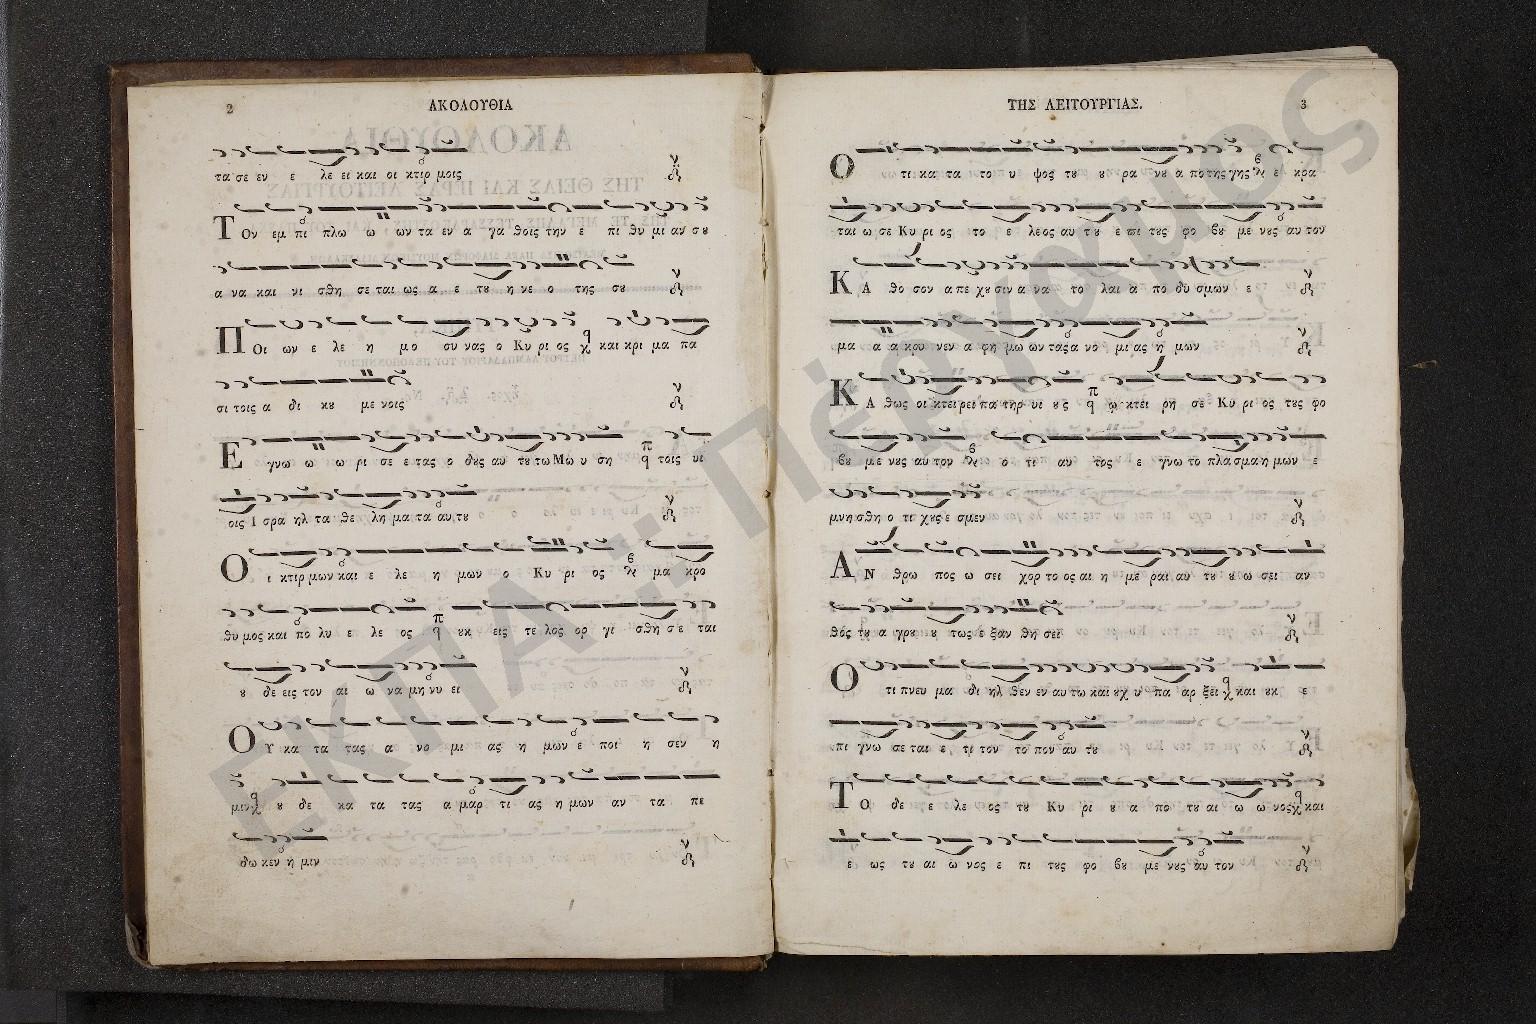 2 ΑΚΟΛΟΥΘΙΑ
τα σε εν ε λε ει και οι κτιρ μοις
Τ Ον εμ πι πλω ω ων τα εν α γα θοις την ε πι θυ μι αν σȣ
α να και νι σθη σε ται ως α ε τȣ η νε ο της σȣ
Π Οι ων ε λε η μο συ νας ο Κυ ρι ος και κρι μα πα
σι τοις α δι κȣ με νοις
Ε γνω ω ω ρι σε ε τας ο δȣς αυ τȣ τω Μω υ ση τοις υι
οις Ι σρα ηλ τα θε λη μα τα αυ τȣ
Ο ι κτιρ μων και ε λε η μων ο Κυ ρι ος μα κρο
θυ μος και πο λυ ε λε ος ȣκ εις τε λος ορ γι σθη σε ται
ȣ δε εις τον αι ω να μη νυ ει
Ο Υ κα τα τας α νο μι ας η μων ε ποι η σεν η
μιν ȣ δε κα τα τας α μαρ τι ας η μων αν τα πε
δω κεν η μιν
ΤΗΣ ΛΕΙΤΟΥΡΓΙΑΣ. 3
Ο τι κα τα το υ ψος τȣ ȣ ρα νȣ α πο της γης ε κρα
ται ω σε Κυ ρι ος το ε λεος αυ τȣ ε πι τȣς φο βȣ με νȣς αυ τον
Κ Α θο σον α πε χȣ σιν α να το λαι α πο δυ σμων ε
μα α α κρυ νεν α φη μω ων τας α νο μι ας η μων
Κ Α θως οι κτει ρει πα τηρ υι ȣ ς ω κτει ρη σε Κυ ρι ος τȣς φο
βȣ με νȣς αυ τον ο τι αυ τος ε γνω το πλα σμα η μων ε
μνη σθη ο τι χȣς ε σμεν
Α Ν θρω πος ω σει χορ το ος αι η με ραι αυ τȣ ȣ ω σει αν
θος τȣ α γρȣ ȣ τως ε ξαν θη σει
Ο τι πνευ μα δι ηλ θεν εν αυ τω και ȣχ υ πα αρ ξει και ȣκ ε
πι γνω σε ται ε τι τον το πον αυ τȣ
Τ Ο δε ε λε ος τȣ Κυ ρι ȣ α πο τȣ αι ω ω νος και
ε ως τȣ αι ω νος ε πι τȣς φο βȣ με νȣς αυ τον
ΕΚΠΑ :: Πέργαμος